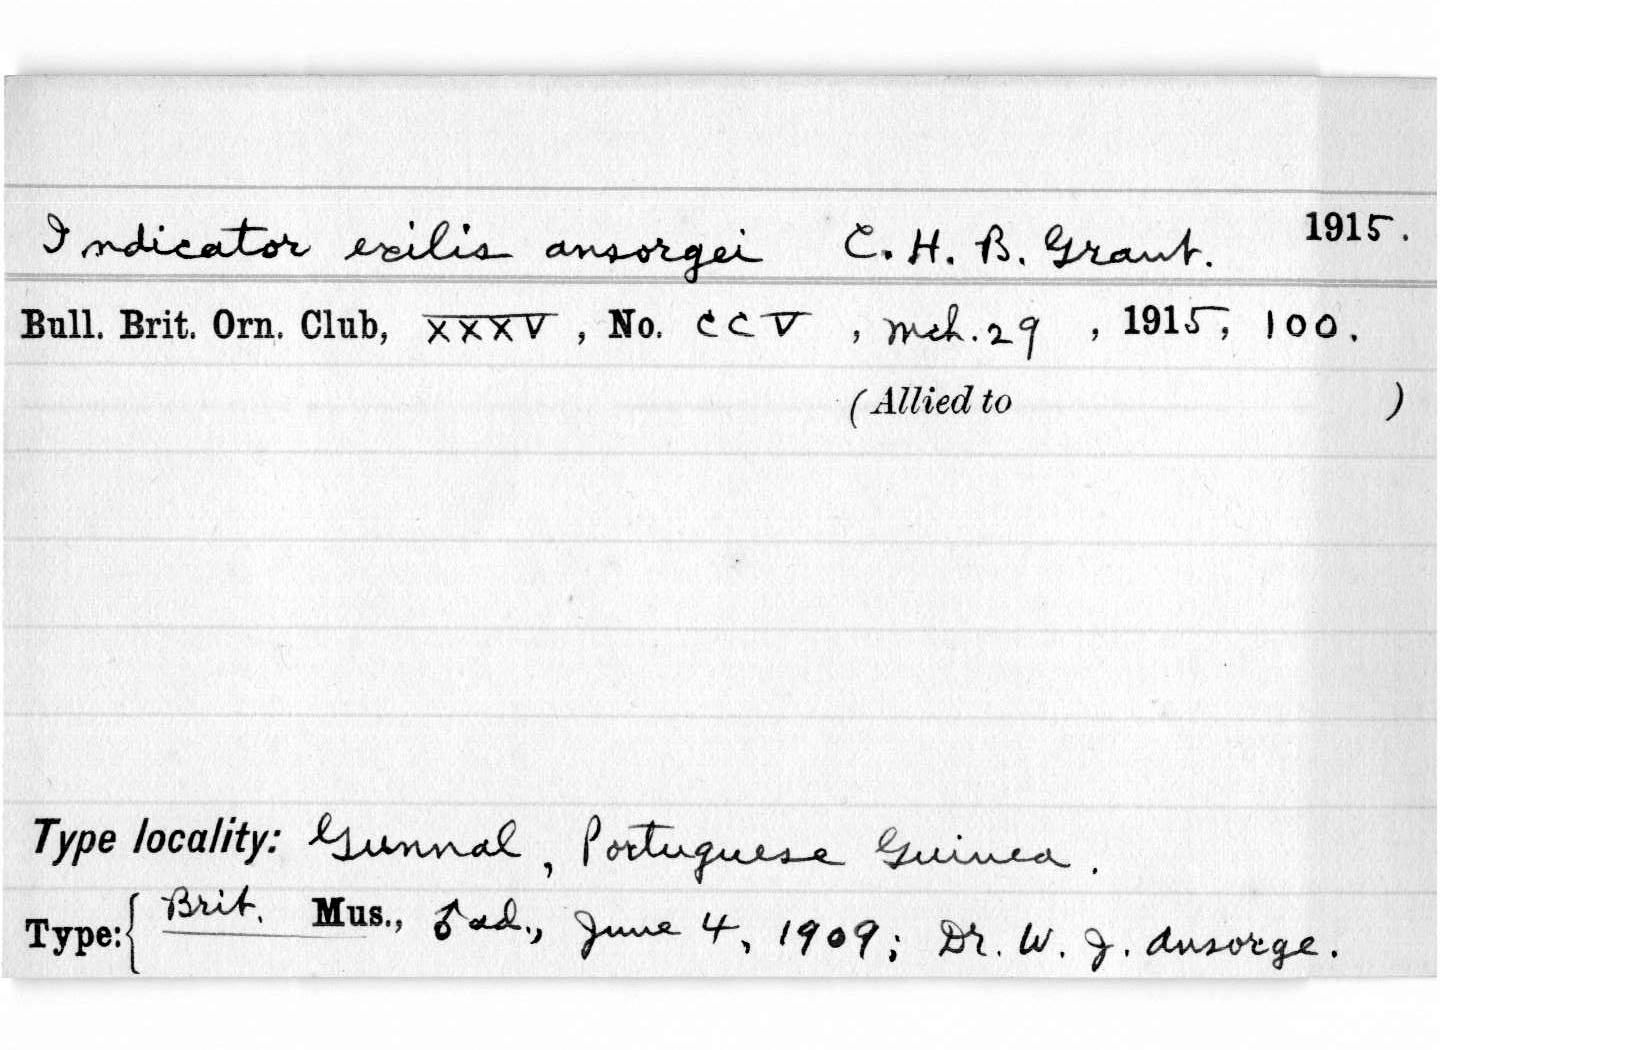 Indicator exilis ansorgei C. H. B. Grant. 1915.
Bull. Brit. Orn. Club, XXXV, No. CCV, Mch. 29, 1915, 100.
(Allied to )
Type locality: Gunnal, Portuguese Guinea.
Type: { Brit. Mus., ♂ ad., June 4, 1909; Dr. W. J. Ansorge.